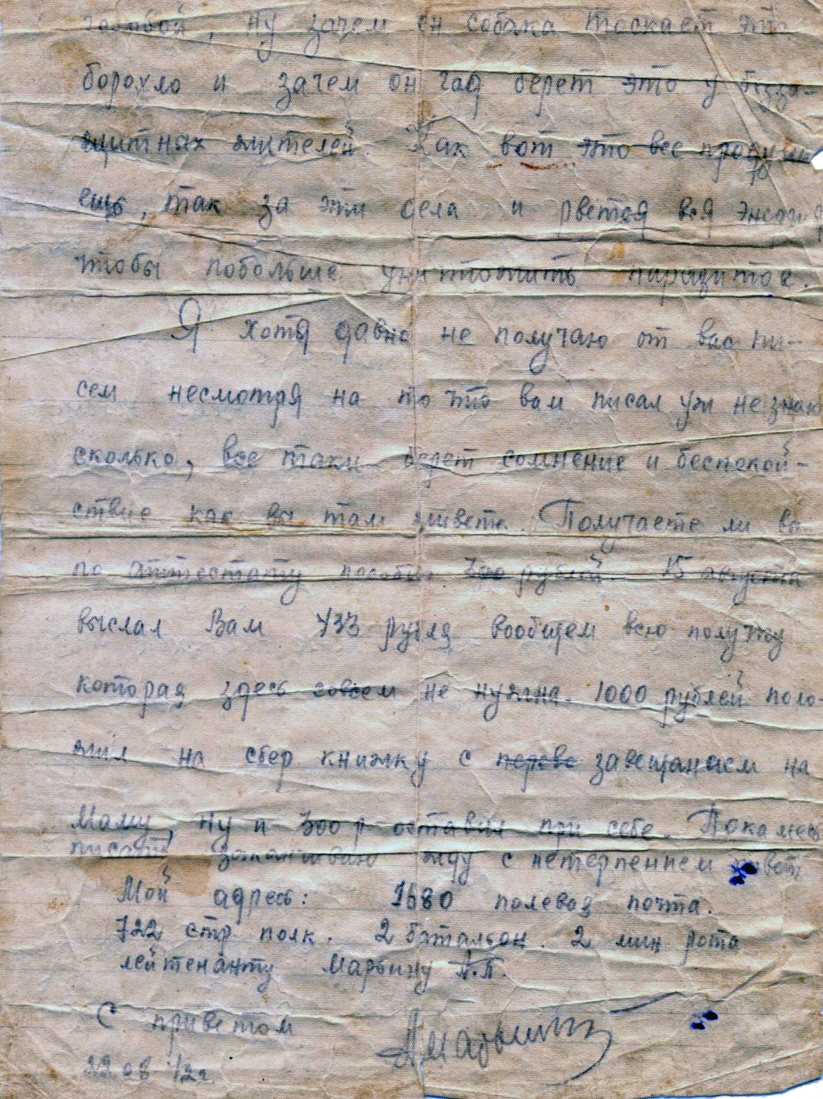 ну зачем он собака таскает это
борохло и зачем он гад берет это у безза-
щитных жителей. Как вот это все
еще, так за эти дела и рвется вся
чтобы побольше уничтожить паразитов.
Я хотя давно не получаю от вас пи-
сем несмотря на то что вам писал уж не знаю
сколько, все таки берет сомнение и беспокой-
ствие как вы там живете. Получаете ли вы
по аттестату пособие 300 рублей. 15 августа
выслал Вам 433 рубля вообщем всю получку
которая здесь совсем не нужна. 1000 рублей поло-
жил на сбер книжку с завещанием на
Маму, ну и 300 р оставил при себе. Пока
писать заканчиваю жду с нетерпением
Мой адрес: 1680 полевая почта.
722 стр полк. 2 батальон. 2 мин рота
лейтенанту Марьину А.П.
С приветом
22 08 42г.